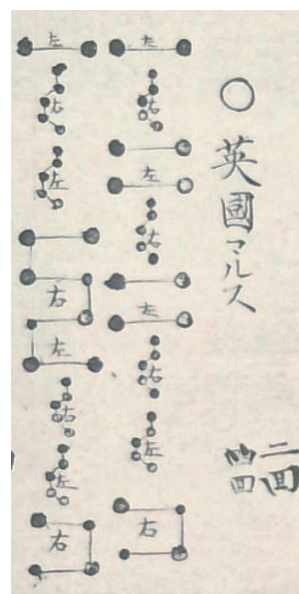 ○ 英國マルス
二回
左
右
左
右
左
右
左
右
左
右
左
右
左
右
左
右